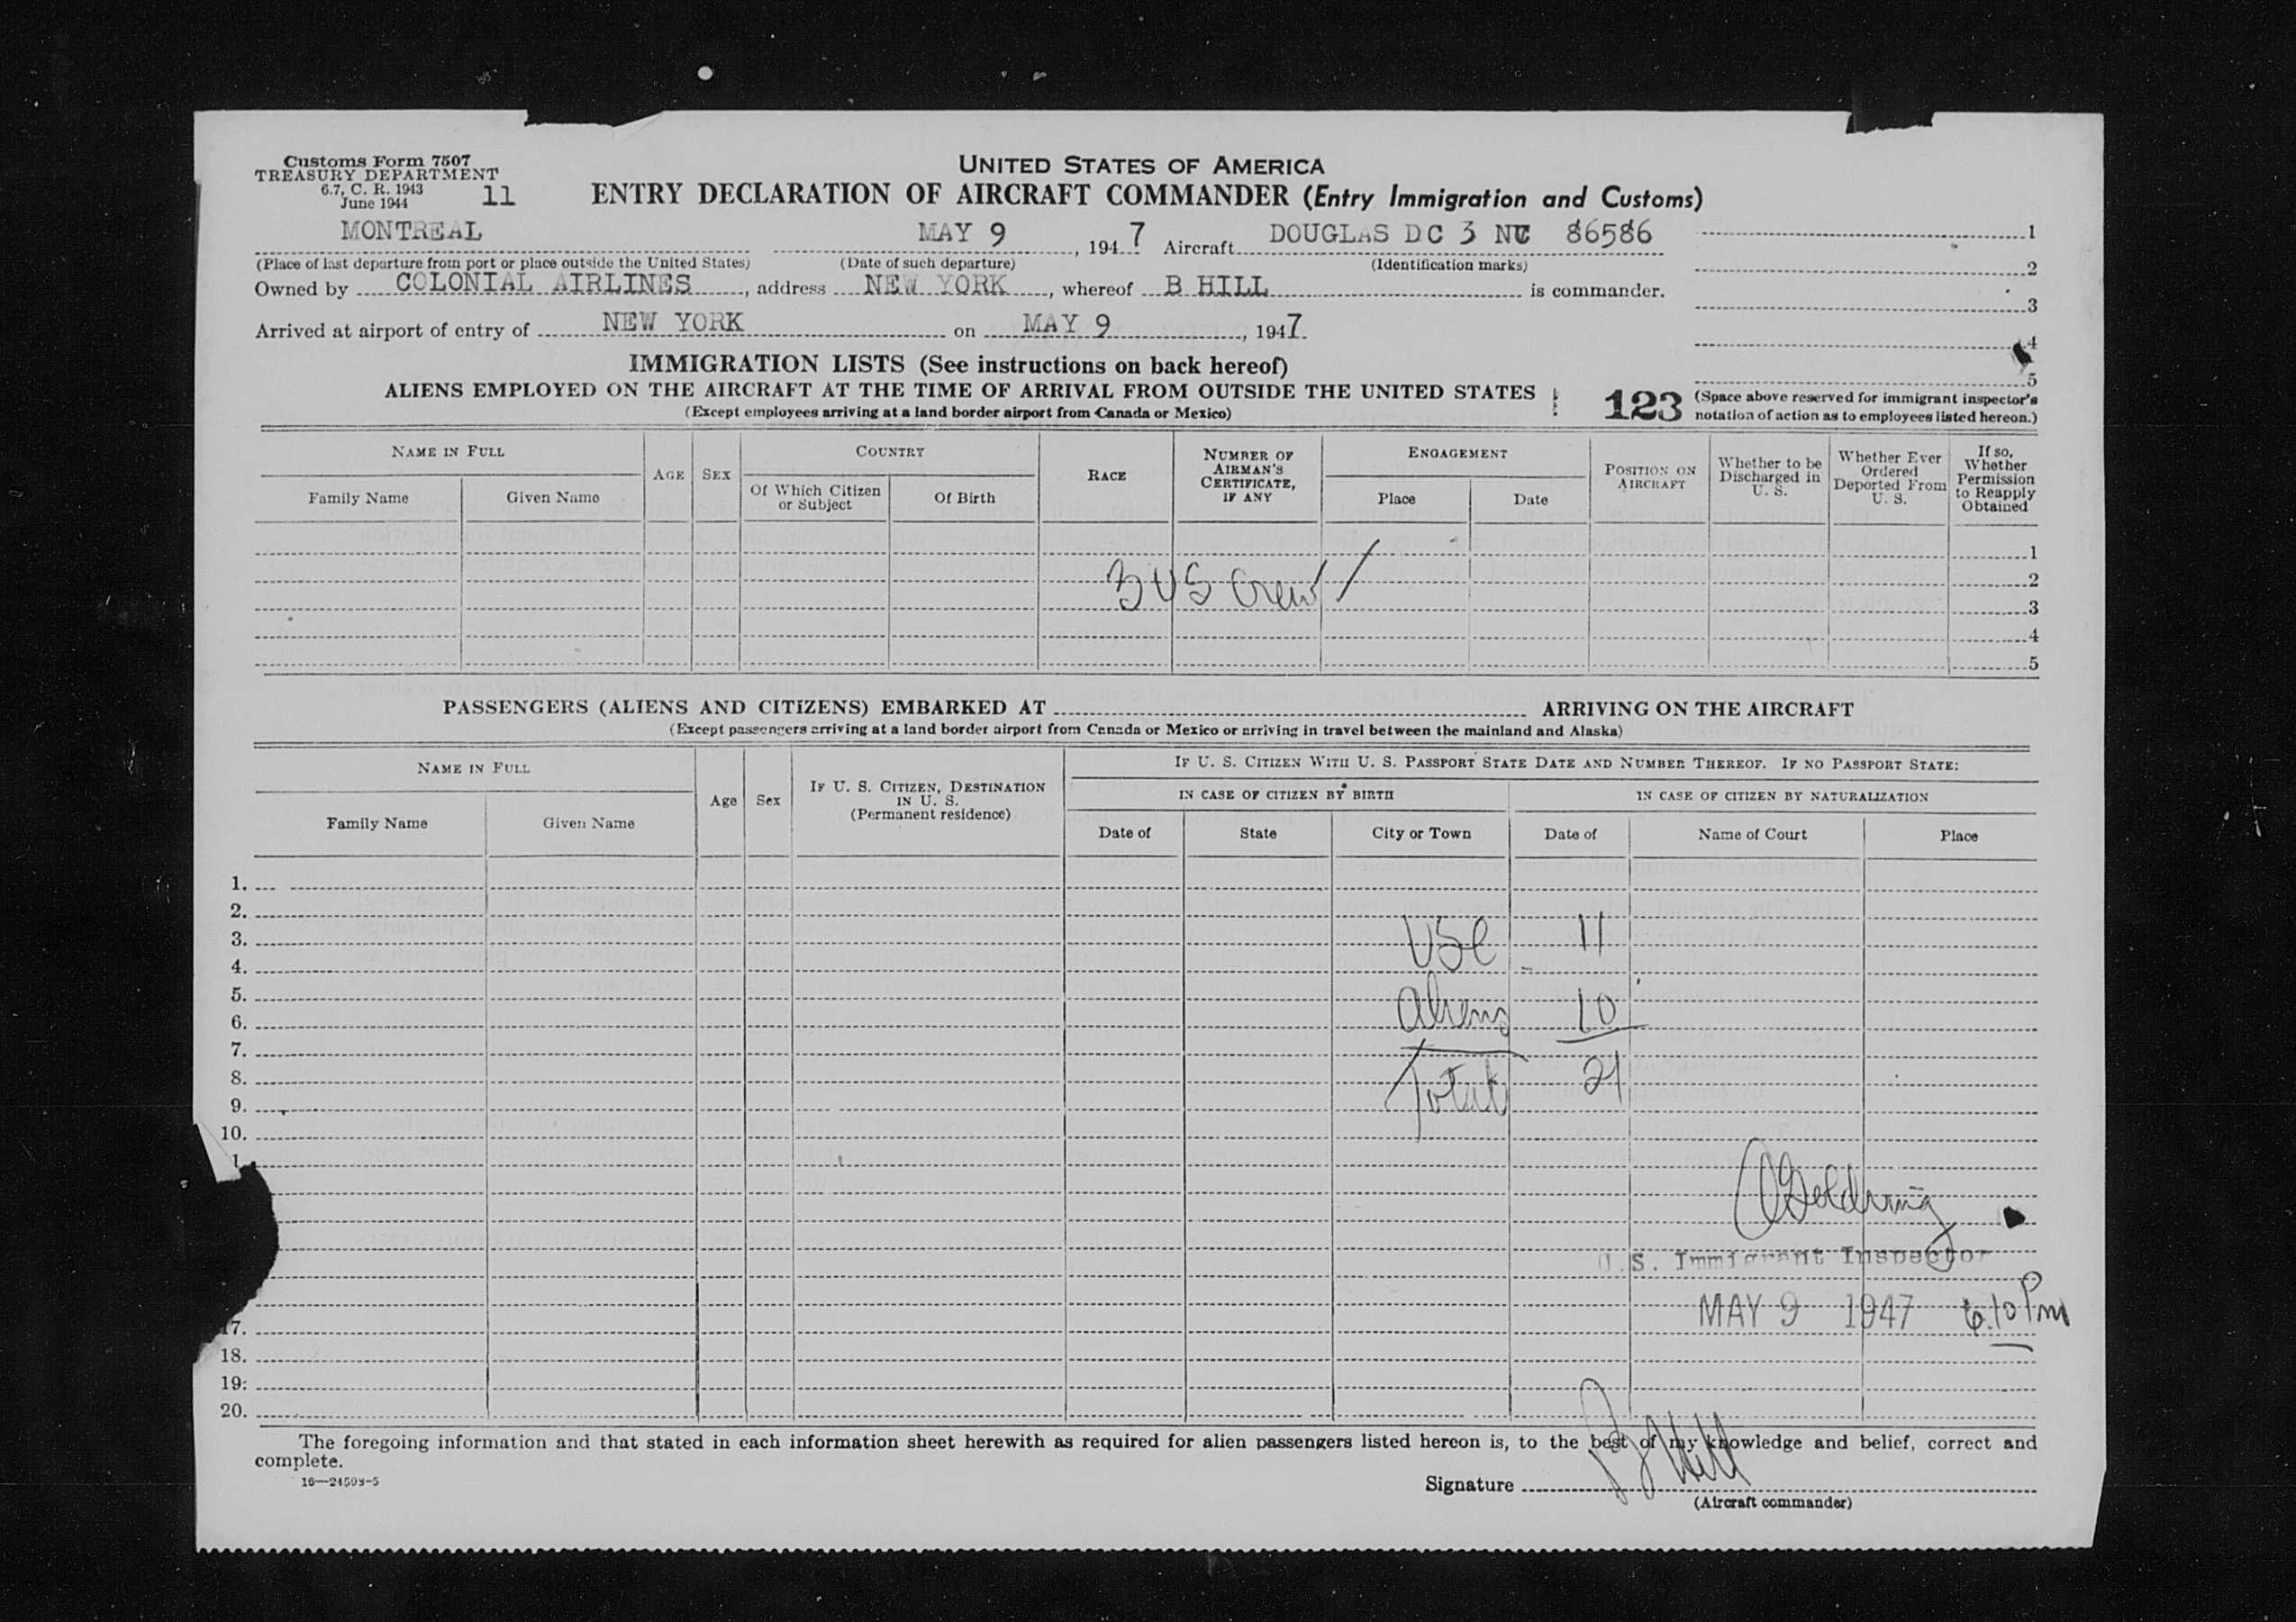 Customs Form 7507
TREASURY DEPARTMENT
6.7, C. R. 1943
June 1944
11
UNITED STATES OF AMERICA
ENTRY DECLARATION OF AIRCRAFT COMMANDER (Entry Immigration and Customs)
MONTREAL MAY 9, 1947 Aircraft DOUGLAS DC 3 NC 86586 1
(Place of last departure from port or place outside the United States) (Date of such departure) (Identification marks) 2
Owned by COLONIAL AIRLINES, address NEW YORK, whereof B HILL is commander.
3
Arrived at airport of entry of NEW YORK on MAY 9, 1947.
4
IMMIGRATION LISTS (See instructions on back hereof)
5
ALIENS EMPLOYED ON THE AIRCRAFT AT THE TIME OF ARRIVAL FROM OUTSIDE THE UNITED STATES
(Except employees arriving at a land border airport from Canada or Mexico)
123
(Space above reserved for immigrant inspector's
notation of action as to employees listed hereon.)
NAME IN FULL
Family Name Given Name
AGE
SEX
COUNTRY
Of Which Citizen
or Subject
Of Birth
RACE
NUMBER OF
AIRMAN'S
CERTIFICATE,
IF ANY
ENGAGEMENT
Place Date
POSITION ON
AIRCRAFT
Whether to be
Discharged in
U. S.
Whether Ever
Ordered
Deported From
U. S.
If so,
Whether
Permission
to Reapply
Obtained
1
2
3 US Crew
3
4
5
PASSENGERS (ALIENS AND CITIZENS) EMBARKED AT ARRIVING ON THE AIRCRAFT
(Except passengers arriving at a land border airport from Canada or Mexico or arriving in travel between the mainland and Alaska)
NAME IN FULL
Family Name Given Name
Age
Sex
IF U. S. CITIZEN, DESTINATION
IN U. S.
(Permanent residence)
IF U. S. CITIZEN WITH U. S. PASSPORT STATE DATE AND NUMBER THEREOF. IF NO PASSPORT STATE:
IN CASE OF CITIZEN BY BIRTH
IN CASE OF CITIZEN BY NATURALIZATION
Date of State City or Town Date of Name of Court Place
1.
2.
3. USC 11
4.
5.
6. Aliens 10
7.
8. Total 21
9.
10.
1
Goldring
U.S. Immigrant Inspector
MAY 9 1947 6.10 Pm
17.
18.
19.
20.
The foregoing information and that stated in each information sheet herewith as required for alien passengers listed hereon is, to the best of my knowledge and belief, correct and
complete.
16—24593-5
Signature B Hill
(Aircraft commander)